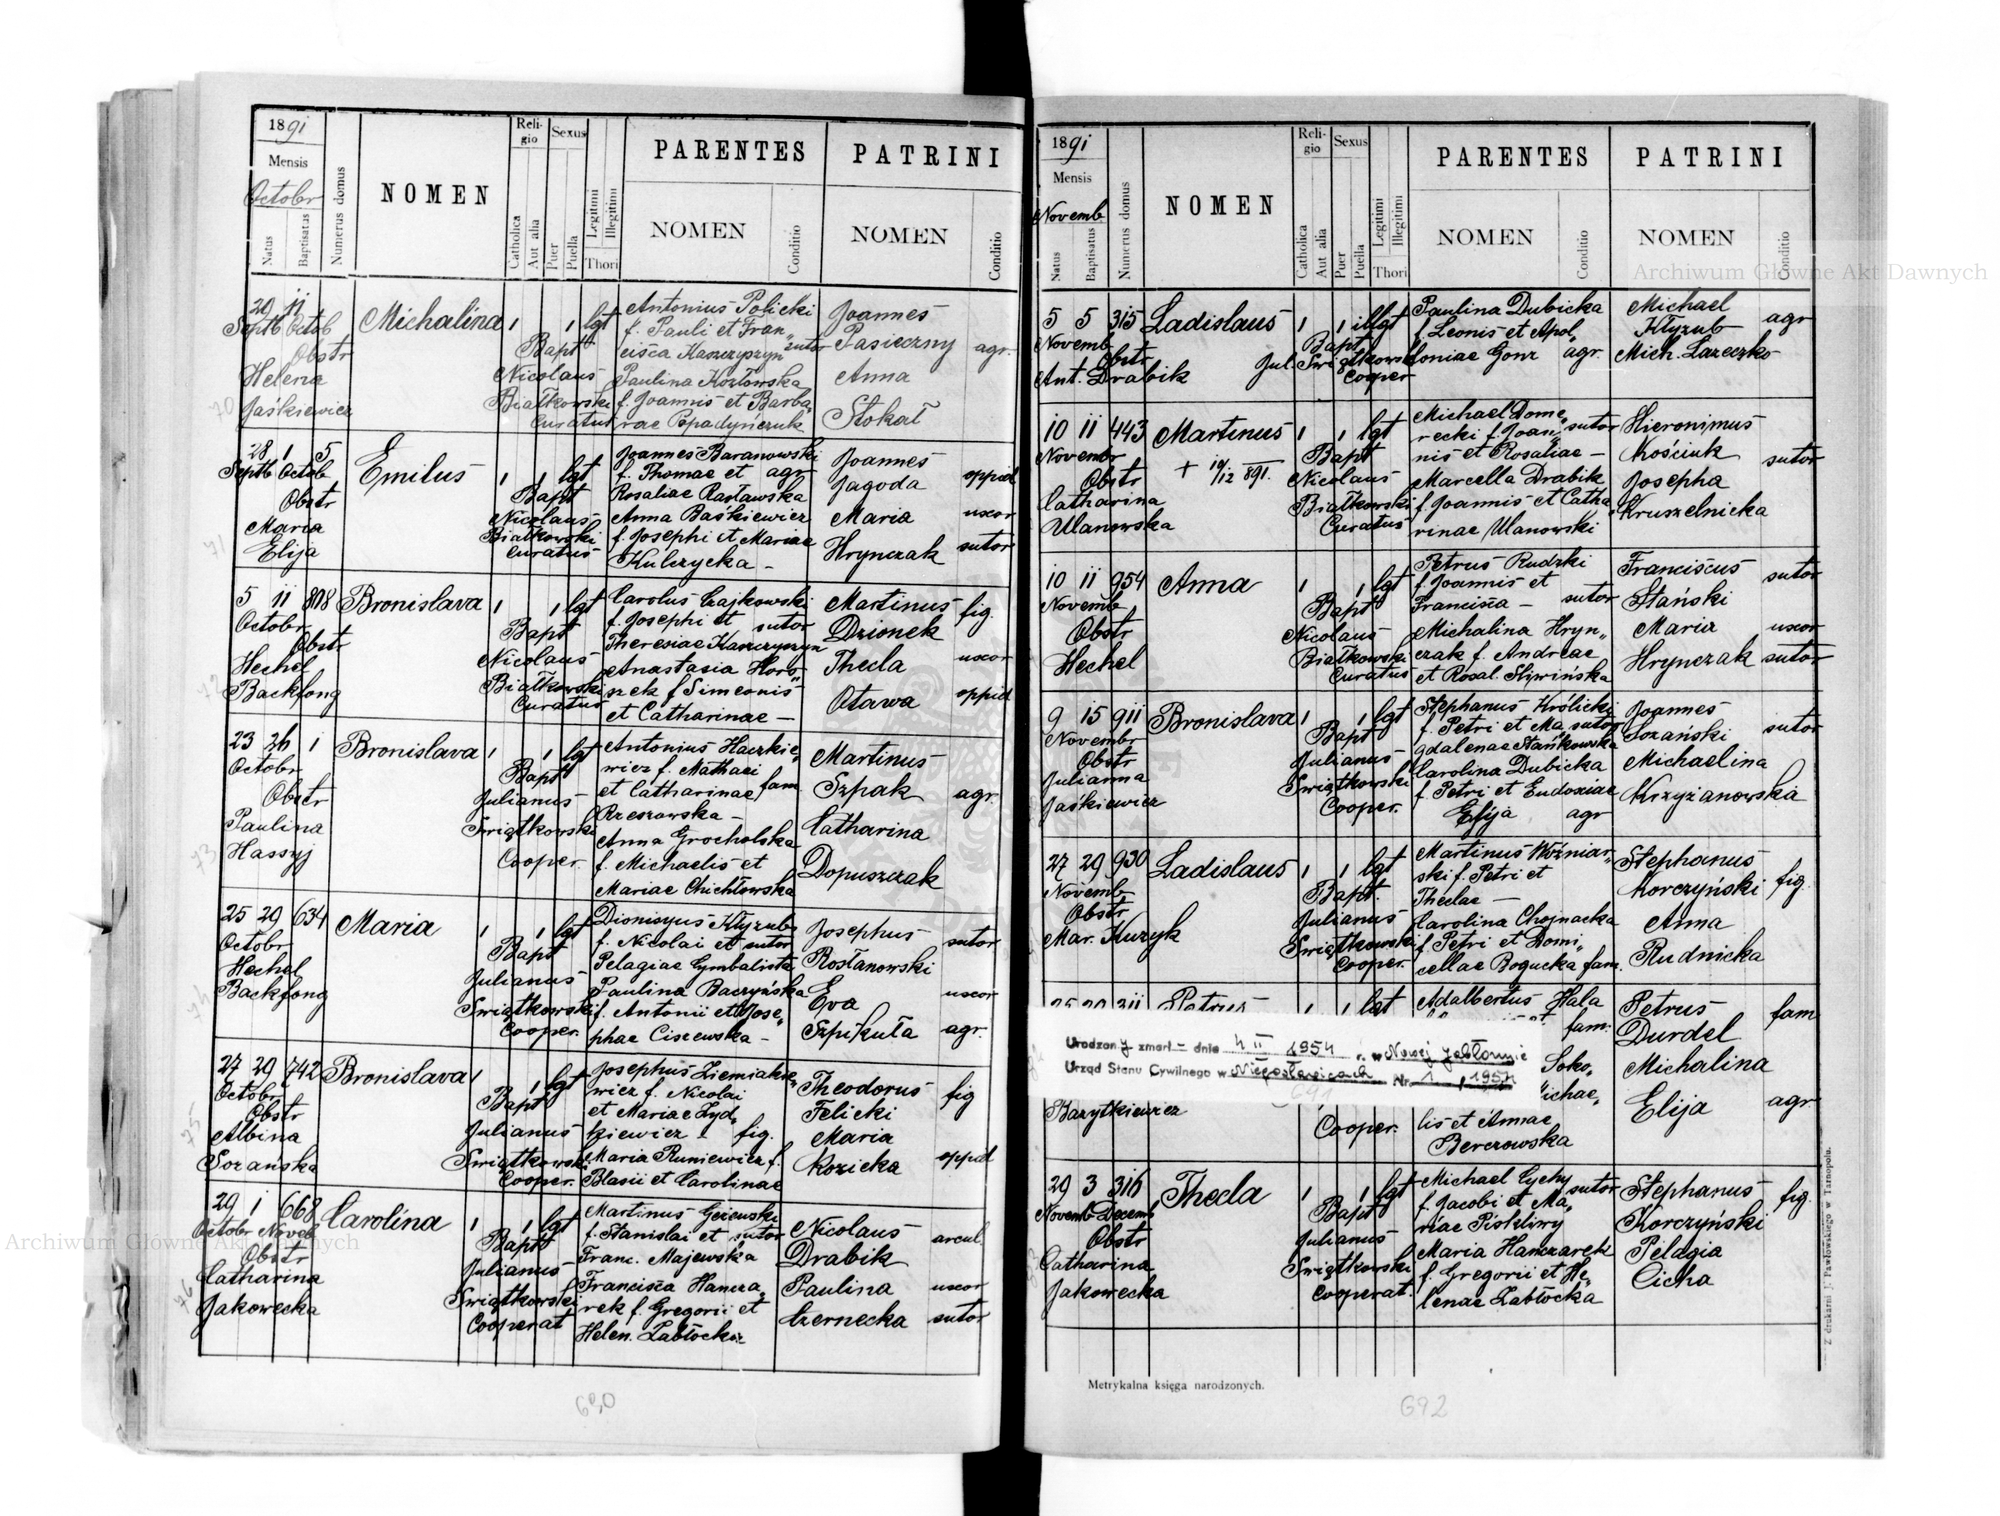 1891
Mensis
Octobr
Natus
Baptisatus
Numerus domus
NOMEN
Religio
Catholica
Aut alia
Sexus
Puer
Puella
Legitimi
Illegitimi
Thori
PARENTES
NOMEN
Conditio
PATRINI
NOMEN
Conditio
29 11
Septb Octob
Obstr
Helena
Jaśkiewicz
Michalina
1 1 lgt
Bapt
Nicolaus
Białkowski
Curatus
Antonius Policki
f. Pauli et Fran„
cisca Kaszczyszyn sutor
Paulina Kozłowska
f. Joannis et Barba„
rae Popadyńczuk
Joannes
Pasieczny agr.
Anna
Stokał
28 1 5
Septb Octob
Obstr
Maria
Elija
Emilus
1 1 lgt
Bapt
Nicolaus
Białkowski
Curatus
Joannes Baranowski
f. Thomae et agr
Rosaliae Rasławska
Anna Baśkiewicz
f. Josephi et Mariae
Kulczycka –
Joannes
Jagoda oppid
Maria uxor
Hrynczak sutor
5 11 808
Octobr
Obstr
Hechel
Backfong
Bronislava
1 1 lgt
Bapt
Nicolaus
Białkowski
Curatus
Carolus Czajkowski
f. Josephi et sutor
Theresiae Kaszczyszyn
Anastasia Horo„
szek f Simeonis
et Catharinae –
Martinus fig.
Dzionek
Thecla uxor
Otawa oppid
23 26 1
Octobr
Obstr
Paulina
Hassyj
Bronislava
1 1 lgt
Bapt
Julianus
Świątkowski
Cooper.
Antonius Haczkie„
wicz f. Mathaei
et Catharinae fam
Rzeszowska –
Anna Grocholska
f. Michaelis et
Mariae Chichłowska
Martinus
Szpak agr.
Catharina
Dopuszczak
25 29 634
Octobr
Hechel
Backfong
Maria
1 1 lgt
Bapt
Julianus
Świątkowski
Cooper.
Dionisyus Kłyzub
f. Nicolai et sutor
Pelagiae Cymbalista
Paulina Baczyńska
f. Antonii et Jose„
phae Ciszewska –
Josephus sutor
Rosłanowski
Eva uxor
Szpikuła agr.
27 29 742
Octobr
Obstr
Albina
Sozańska
Bronislava
1 1 lgt
Bapt
Julianus
Świątkowski
Cooper.
Josephus Ziemiakie„
wicz f. Nicolai
et Mariae Zyd„
kiewicz – fig.
Maria Runiewicz f.
Blasii et Carolinae
Theodorus fig
Felicki
Maria
Kozicka oppid
29 1 668
Octobr Noveb
Obstr
Catharina
Jakowecka
Carolina
1 1 lgt
Bapt
Julianus
Świątkowski
Cooperat
Martinus Gezewski
f. Stanislai et sutor
Franc. Majewska
Francisca Hancza„
rek f. Gregorii et
Helen. Zabłocka
Nicolaus arcul.
Drabik
Paulina uxor
Czernecka sutor
70
71
72
73
74
75
76
690
1891
Mensis
Novemb
Natus
Baptisatus
Numerus domus
NOMEN
Religio
Catholica
Aut alia
Sexus
Puer
Puella
Legitimi
Illegitimi
Thori
PARENTES
NOMEN
Conditio
PATRINI
NOMEN
Conditio
5 5 315
Novemb
Obstr
Ant. Drabik
Ladislaus
1 1 illgt
Bapt
Jul. Świątkowski
Cooper
Paulina Dubicka
f Leonis et Apol„
loniae Gonz agr.
Michael
Kłyzub agr
Mich. Lazeczko
10 11 443
Novembr
Obstr
Catharina
Ulanowska
Martinus
+ 19/12 891.
1 1 lgt
Bapt
Nicolaus
Białkowski
Curatus
Michael Dome„
recki f. Joan„ sutor
nis et Rosaliae –
Marcella Drabik
f. Joannis et Catha„
rinae Ulanowski
Hieronimus
Kościuk sutor
Josepha
Kruszelnicka
10 11 954
Novemb
Obstr
Hechel
Anna
1 1 lgt
Bapt
Nicolaus
Białkowski
Curatus
Petrus Rudzki
f. Joannis et
Francisca – sutor
Michalina Hryn„
czak f. Andreae
et Rosal. Sliwińska
Franciscus sutor
Stański
Maria uxor
Hrynczak sutor
9 15 911
Novembr
Obstr
Julianna
Jaśkiewicz
Bronislava
1 1 lgt
Bapt
Julianus
Świątkowski
Cooper.
Stephanus Królicki
f. Petri et Ma„ sutor
gdalenae Stańkowska
Carolina Dubicka
f. Petri et Eudoxiae
Elija agr
Joannes
Sozański sutor
Michaelina
Krzyżanowska
27 29 930
Novemb
Obstr
Mar. Kuzyk
Ladislaus
1 1 lgt
Bapt.
Julianus
Świątkowski
Cooper.
Martinus Woźniar„
ski f. Petri et
Theclae –
Carolina Chojnacka
f Petri et Domi„
cellae Bogucka fam.
Stephanus
Korczyński fig.
Anna
Rudnicka
25 29 311
Petrus
1 1 lgt
Adalbertus Hala
fam.
Petrus fam
Durdel
Urodzony zmarł – dnia 4 II 1954 r. w Nowej Jabłonnie
Urząd Stanu Cywilnego w Niegosławicach Nr. 1, 1954
691
Soko„
ichae„
Michalina
Elija agr.
Bazytkiewicz
Cooper.
lis et Annae
Berezowska
29 3 316
Novemb Decemb
Obstr
Catharina
Jakowecka
Thecla
1 1 lgt
Bapt
Julianus
Świątkowski
Cooperat.
Michael Cychy sutor
f. Jacobi et Ma„
riae Piskliwy
Maria Hanczarek
f. Gregorii et He„
lenae Zabłocka
Stephanus fig.
Korczyński
Pelagia
Cicha
Metrykalna księga narodzonych.
Z drukarni J. Pawłowskiego w Tarnopolu.
692
Archiwum Główne Akt Dawnych
Archiwum Główne Akt Dawnych